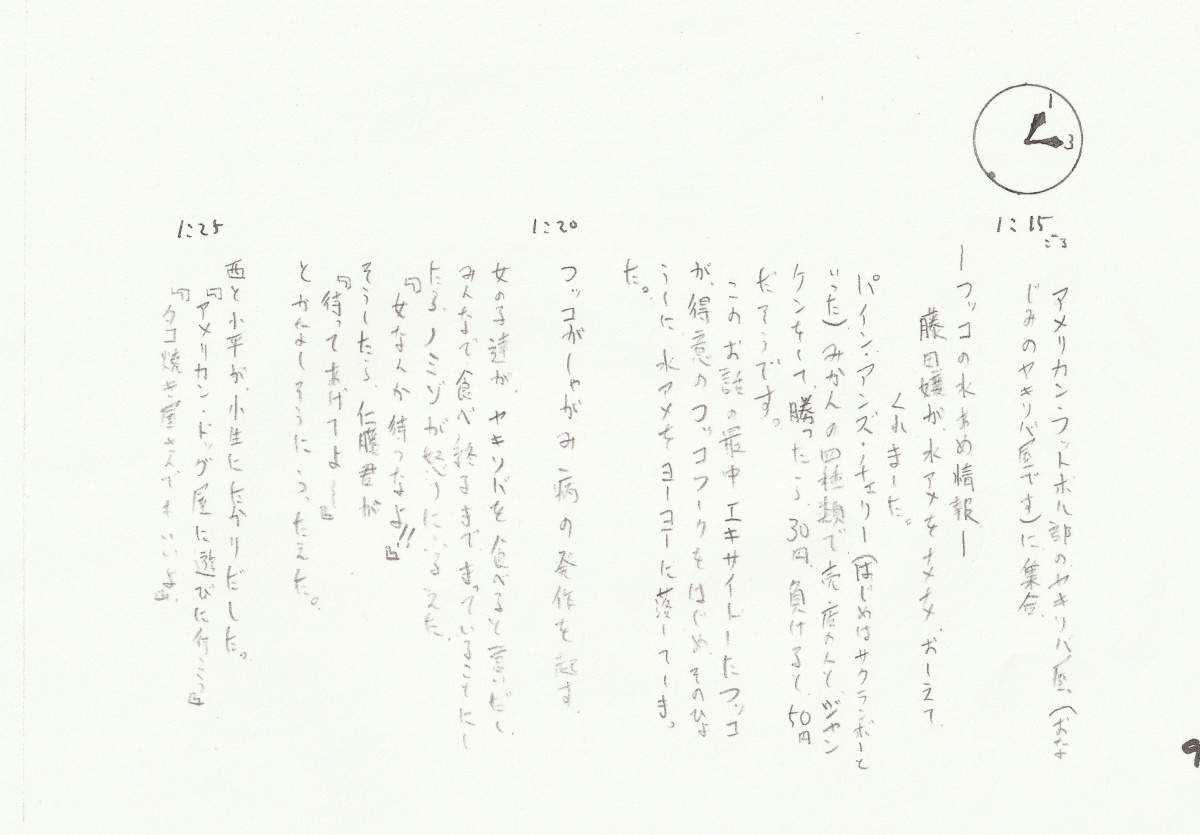 1
3
1:15
ごろ
アメリカン・フットボル部のヤキソバ屋、(おな
じみのヤキソバ屋です)に集合
ーフッコの水あめ情報ー
藤田嬢が、水アメをナメナメ、おーえて
くれました。
パイン・アンズ・チェリー(はじめはサクランボーと
いった)、みかんの四種類で売店の人と、ジャン
ケンをして、勝ったら、30円、負けると、50円
だそうです。
このお話の最中エキサイトしたフッコ
が、得意のフッコワークをはじめ、そのひょ
うしに、水アメをヨーヨーに落してしまっ
た。
1:20
フッコがしゃがみ病の発作を起す。
女の子達が、ヤキソバを食べると言いだし、
みんなで食べ終るまでまっていることにし
たら、ノミゾが怒りにふるえた。
『女なんか待つなよ!!』
そうしたら、仁藤君が
『待ってあげてよ〜』
とかなしそうにうったえた。
1:25
西と小平が、小生にたかりだした。
『アメリカン・ドッグ屋に遊びに行こう』
『タコ焼き屋さんでもいいよ』
9